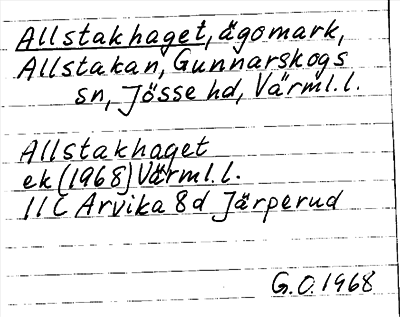 Allstakhaget, ägomark,
Allstakan, Gunnarskogs
sn, Jösse hd, Värml.l.
Allstakhaget
ek (1968) Värml.l.
11C Arvika 8d Järperud
G.O. 1968